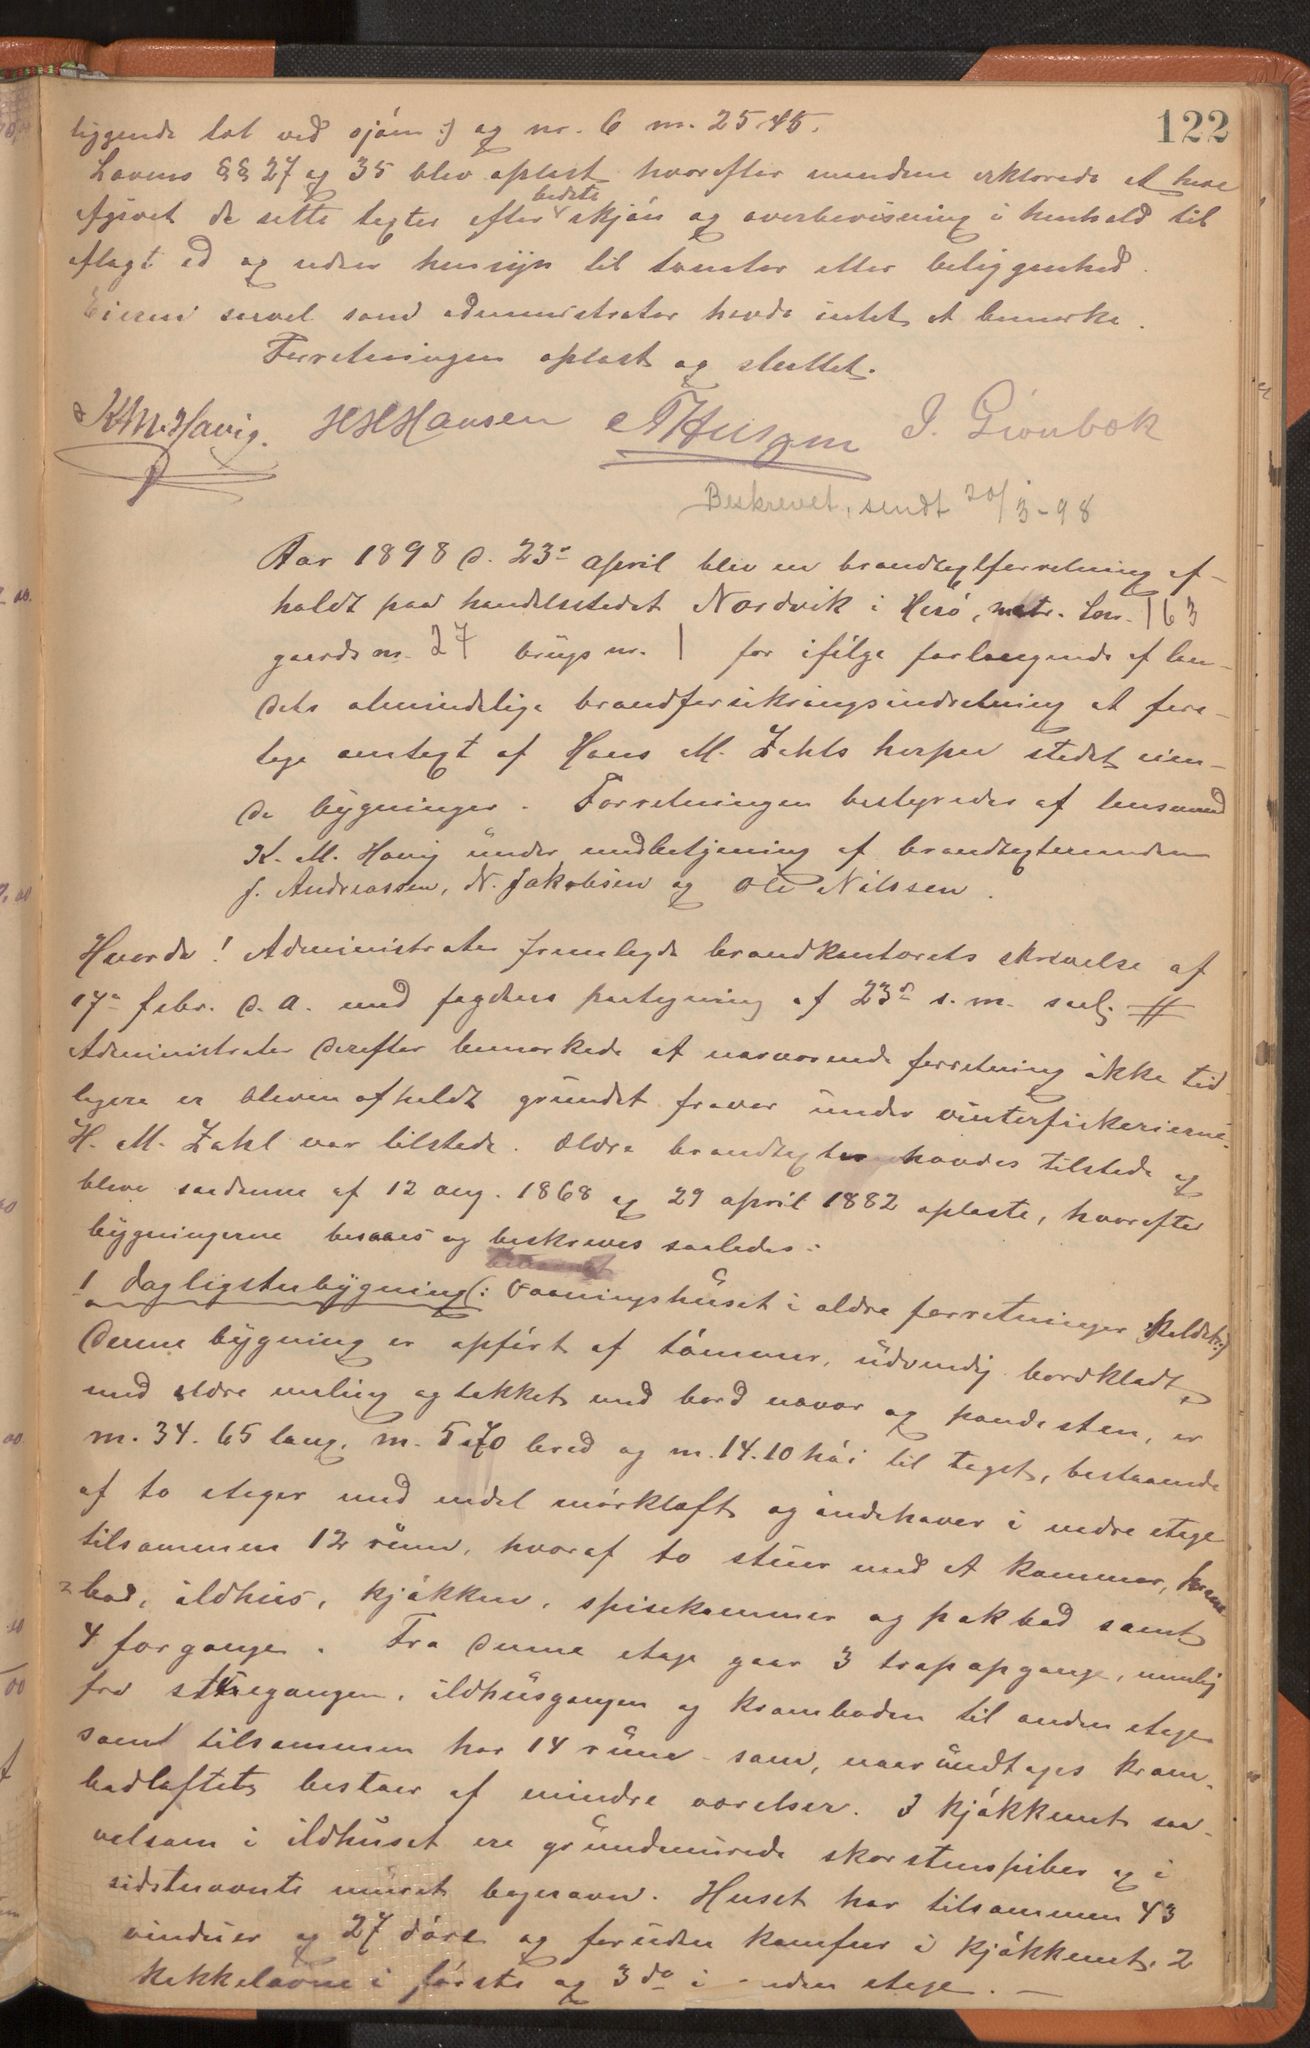 122
liggende tot ved sjøen :) og nr. 6 m. 25.45.
Lovens §§ 27 og 35 blev oplæst hvorefter mændene erklærede at have
afgivet de satte taxter efter bedste skjøn og overbevisning i henhold til
aflagt ed og uden hensyn til tomter eller beliggenhed.
Eieren saavel som administrator havde intet at bemærke.
Forretningen oplæst og sluttet.
K. M. Havig. H H Hansen J. Grønbæk
Beskrevet, sendt 20/3-98
Aar 1898 d. 23de april blev en brandtaxtforretning af-
holdt paa handelsstedet Nordvik i Herø, matr. Lnr. 163
gaards nr. 27 brugs nr. 1 for ifølge forlangende af lan-
dets almindelige brandforsikringsindretning at fore-
tage omtaxt af Hans M. Zahls herpaa stedet eien-
de bygninger. Forretningen bestyredes af lensmand
K. M. Havig under medbetjening af brandtaxtmændene
J. Andreassen, N. Jakobsen og Ole Nilssen.
Hvorda! Administrator fremlagde brandkontorets skrivelse af
17de febr. d. a. med fogdens paategning af 23de s. m. saal. #
Administrator derefter bemærkede at nærværende forretning ikke tid-
ligere er bleven afholdt grundet fravær under vinterfiskerierne.
H. M. Zahl var tilstede. Ældre brandtaxter havdes tilstede og
bleve saadanne af 12 aug. 1868 og 29 april 1882 oplæste, hvorefter
bygningerne besaaes og beskreves saaledes:
1 Dagligstubygning (: Vaaningshuset i ældre forretninger kaldet :)
Denne bygning er opført af tømmer, udvendig bordklædt,
med ældre maling og tækket med bord næver og pandesten, er
m. 34.65 lang, m. 5.70 bred og m. 14.10 høi til taget, bestaaende
af to etager med endel mørkloft og indehaver i nedre etage
tilsammen 12 rum, hvoraf to stuer med et kammer, kram-
bod, ildhus, kjøkken, spisekammer og pakbod samt
4 forgange. Fra denne etage gaar 3 trapopgange, nemlig
fra stuegangen, ildhusgangen og kramboden til anden etage
samt tilsammen har 14 rum som, naar undtages kram-
bodloftet, bestaar af mindre værelser. I kjøkkenet saa-
velsom i ildhuset ere grundmurede skorstenspiber og i
sidstnævnte muret bagerovn. Huset har tilsammen 43
vinduer og 27 døre og foruden komfur i kjøkkenet, 2
kakkelovne i første og 3 do i anden etage. —